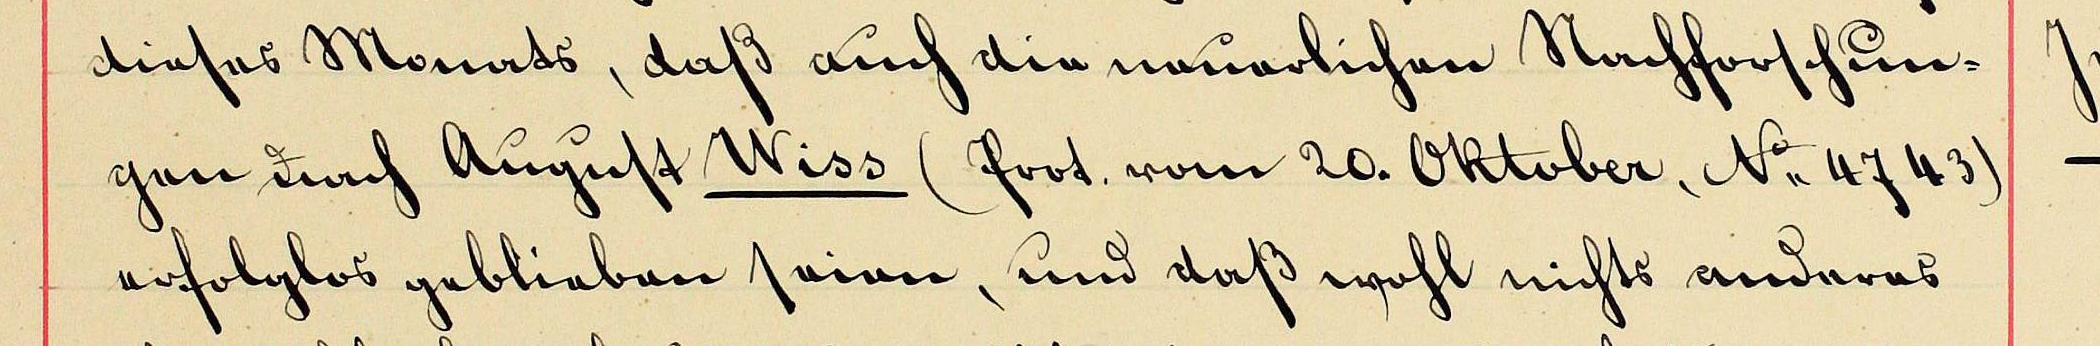 dieses Monats, daß auch die neuerlichen Nachforschun-
gen nach August Wiss (Prot. vom 20. Oktober, No. 4743)
erfolglos geblieben seien, und daß wohl nichts anderes